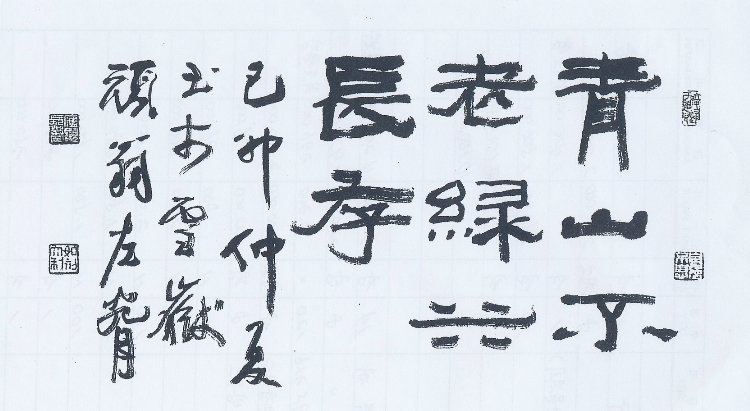 青山不
老綠水
長存
己卯仲夏
书於雪嶽
頑翁左